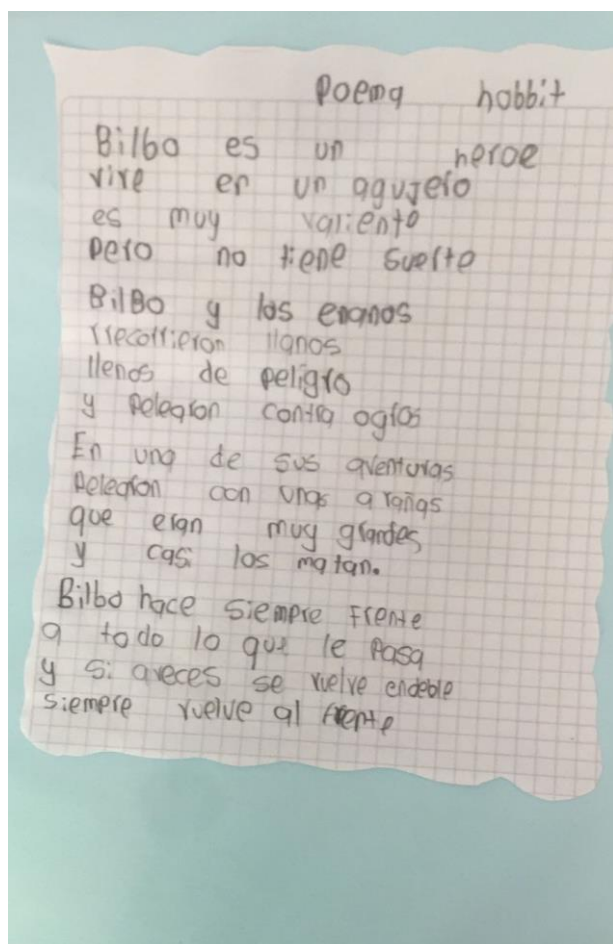 Poema hobbit
Bilbo es un heroe
vive en un agujero
es muy valiente
pero no tiene suerte
BilBo y los enanos
rrecorrieron llanos
llenos de peligro
y pelearon contra ogros
En una de sus aventuras
Pelearon con unas arañas
que eran muy grandes
y casi los matan.
Bilbo hace siempre frente
a todo lo que le pasa
y si aveces se vuelve endeble
siempre vuelve al frente